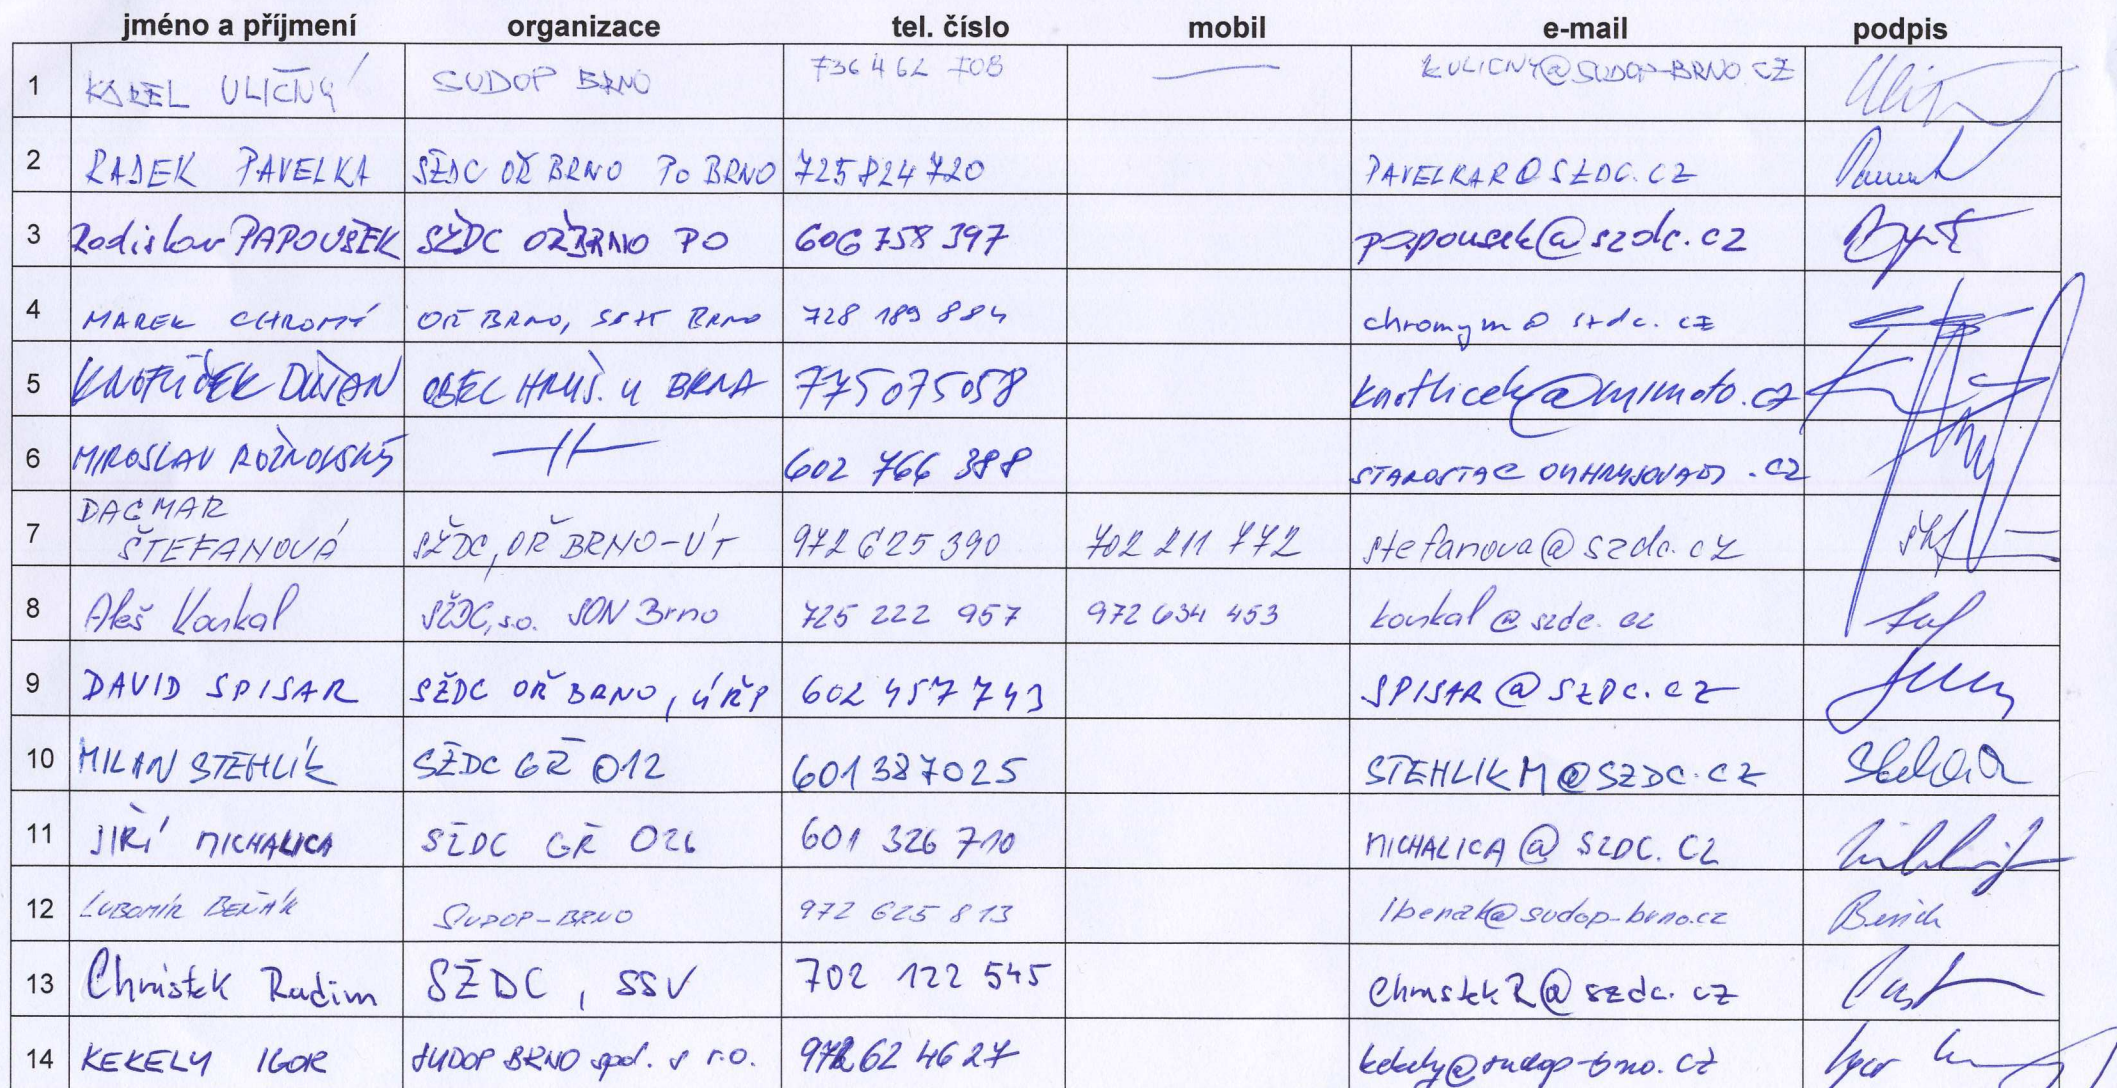 jméno a příjmení organizace tel. číslo mobil e-mail podpis
1 KAREL ULIČNÝ SUDOP BRNO 736 462 708 KULICNY@SUDOP-BRNO.CZ
2 RADEK PAVELKA SŽDC OŘ BRNO PO BRNO 725 824 720 PAVELKAR@SZDC.CZ
3 Radislav PAPOUŠEK SŽDC OŘ BRNO PO 606 758 397 papousek@szdc.cz
4 MAREK CHROMÝ OŘ BRNO, BRNO 728 189 884 chromym@szdc.cz
5 KNOFLÍČEK DUŠAN OBEC HRUŠ. U BRNA 775075058 knoflicek@mimoto.cz
6 MIROSLAV ROŽNOVSKÝ 602 766 388
7 DAGMAR
ŠTEFANOVÁ SŽDC, OŘ BRNO-ÚT 972 625 390 702 211 772 stefanova@szdc.cz
8 Aleš Koukal SŽDC, s.o. SON Brno 725 222 957 972 634 453 koukal@szdc.cz
9 DAVID SPISAR SŽDC OŘ BRNO, ÚŘP 602 457 743 SPISAR@SZDC.CZ
10 MILAN STEHLÍK SŽDC GŘ O12 601 387 025 STEHLIKM@SZDC.CZ
11 JIŘÍ MICHALICA SŽDC GŘ O26 601 326 710 MICHALICA@SZDC.CZ
12 LUBOMÍR BEŇÁK SUDOP-BRNO 972 625 813 lbenak@sudop-brno.cz
13 Chrástek Radim SŽDC, SSV 702 122 545 ChrastekR@szdc.cz
14 KEKELY IGOR SUDOP BRNO spol. s r.o. 972 62 46 27 kekely@sudop-brno.cz